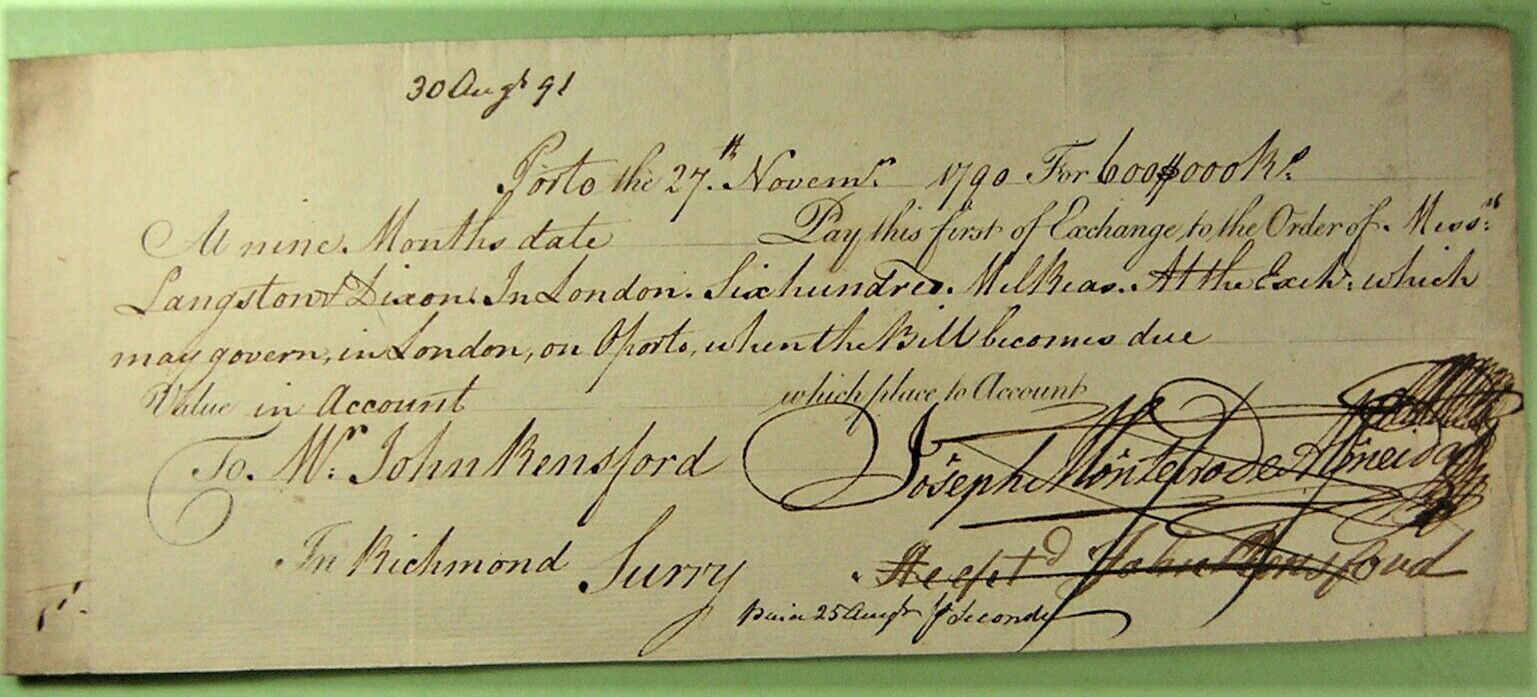 30 Augt 91
Porto the 27th. Novemr. 1790 For 600$000 Rs.
At nine Months date Pay this first of Exchange, to the Order of Messrs:
Langston & Dixon. In London. Six hundred. MilReas. At the Exche. which
may govern, in London, on Oporto, when the Bill becomes due
Value in Account which place to Account
To. Mr. John Rensford Joseph Monteiro de Almeida
In Richmond Surry Accept'd John Rensford
paid 25 Augt